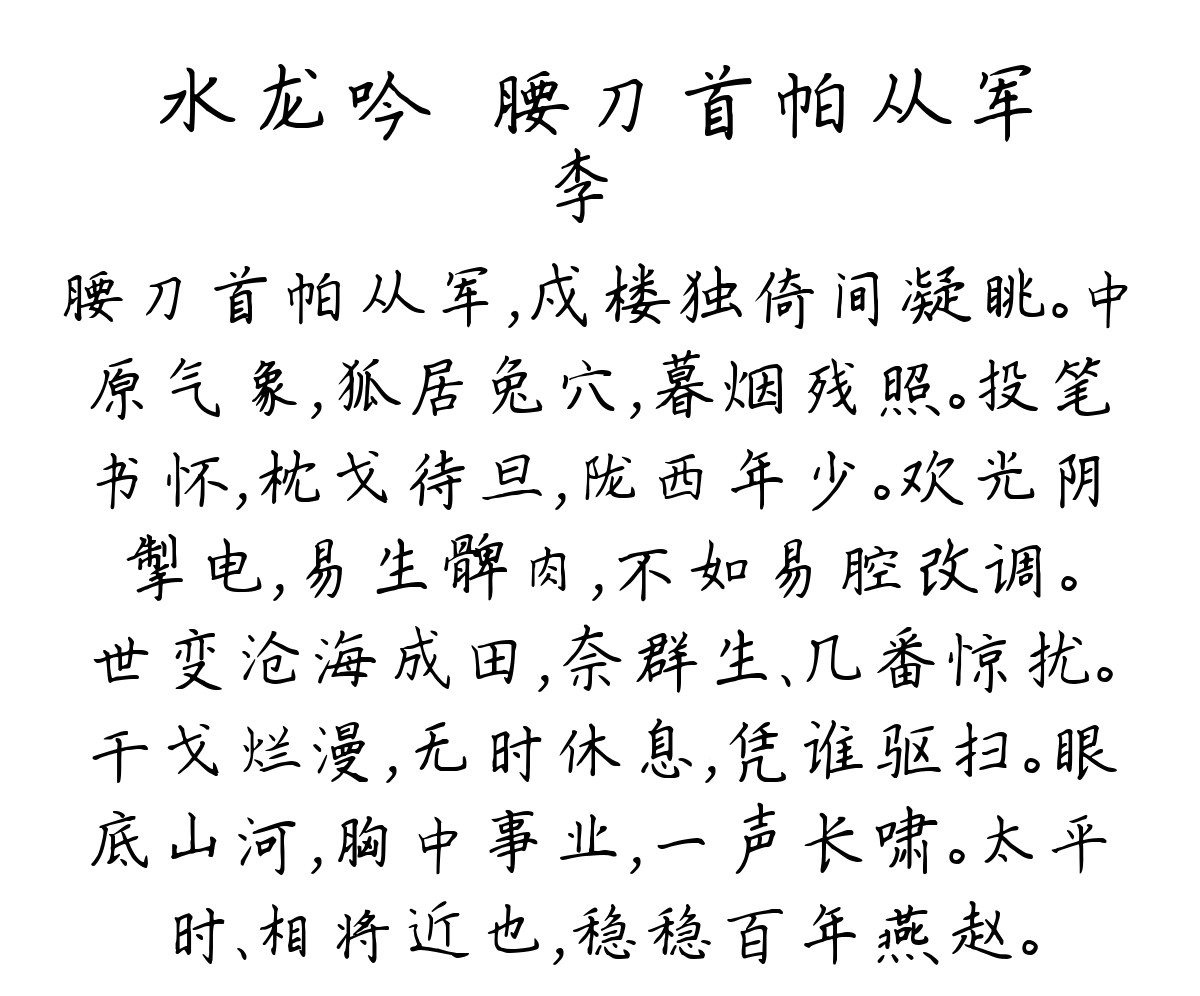 水龙吟 腰刀首帕从军
李
腰刀首帕从军,戍楼独倚间凝眺。中
原气象,狐居兔穴,暮烟残照。投笔
书怀,枕戈待旦,陇西年少。欢光阴
掣电,易生髀肉,不如易腔改调。
世变沧海成田,奈群生、几番惊扰。
干戈烂漫,无时休息,凭谁驱扫。眼
底山河,胸中事业,一声长啸。太平
时、相将近也,稳稳百年燕赵。